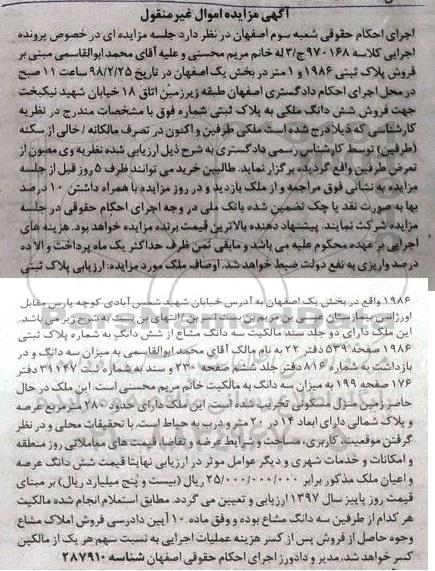 آگهی مزایده اموال غیرمنقول
اجرای احکام حقوقی شعبه سوم اصفهان در نظر دارد جلسه مزایده ای در خصوص پرونده
اجرایی کلاسه ۹۷۰۱۶۸ج/۳ له خانم مریم محسنی و علیه آقای محمد ابوالقاسمی مبنی بر
فروش پلاک ثبتی ۱۹۸۶ و ۱ متر در بخش یک اصفهان در تاریخ ۹۸/۲/۲۵ ساعت ۱۱ صبح
در محل اجرای احکام دادگستری اصفهان طبقه زیرزمین اتاق ۱۸ خیابان شهید نیکبخت
جهت فروش شش دانگ ملکی به پلاک ثبتی شماره فوق با مشخصات مندرج در نظریه
کارشناسی که ذیلا درج شده است ملکی طرفین و اکنون در تصرف مالکانه / خالی از سکنه
(طرفین) توسط کارشناس رسمی دادگستری به شرح ذیل ارزیابی شده نظریه وی مصون از
تعرض طرفین واقع گردیده برگزار نماید. طالبین خرید می توانند ظرف ۵ روز قبل از جلسه
مزایده به نشانی فوق مراجعه و از ملک بازدید و در روز مزایده با همراه داشتن ۱۰ درصد
بها به صورت نقد یا چک تضمین شده بانک ملی در وجه اجرای احکام حقوقی در جلسه
مزایده شرکت نمایند. پیشنهاد دهنده بالاترین قیمت برنده مزایده خواهد بود. هزینه های
اجرایی بر عهده محکوم علیه می باشد و مابقی ثمن ظرف حداکثر یک ماه پرداخت و الا ده
درصد واریزی به نفع دولت ضبط خواهد شد. اوصاف ملک مورد مزایده: ارزیابی پلاک ثبتی
۱۹۸۶ واقع در بخش یک اصفهان به آدرس خیابان شهید شمس آبادی کوچه پارس مقابل
اورژانس بیمارستان عیسی بن مریم بن بست نسرین / انتهای بن بست به شرح زیر می باشد.
این ملک دارای دو جلد سند مالکیت سه دانگ مشاع از شش دانگ به شماره پلاک ثبتی
۱۹۸۶ صفحه ۵۳۹ دفتر ۲۲ به نام مالک آقای محمد ابوالقاسمی به میزان سه دانگ و در
بازداشت به شماره ۸۱۶ دفتر جلد ششم صفحه ۲۳۰ و سند به شماره ثبت ۳۱۱۴۷ دفتر
۱۷۶ صفحه ۱۹۹ به میزان سه دانگ به مالکیت خانم مریم محسنی است. این ملک در حال
حاضر زمین منزل مسکونی تخریب شده است. این ملک دارای حدود ۲۸۰ مترمربع عرصه
و پلاک شمالی دارای ابعاد ۱۴ در ۲۰ متر و درب به حیاط است. با تحقیقات محلی و در نظر
گرفتن موقعیت، کاربری، مساحت و شرایط عرضه و تقاضا، قیمت های معاملاتی روز منطقه
و امکانات و خدمات شهری و دیگر عوامل موثر در ارزیابی نهایتا قیمت شش دانگ عرصه
و اعیان ملک مذکور برابر ۲۵/۰۰۰/۰۰۰/۰۰۰ ریال (بیست و پنج میلیارد ریال) بر مبنای
قیمت روز پاییز سال ۱۳۹۷ ارزیابی و تعیین می گردد. مطابق استعلام انجام شده مالکیت
هر کدام از طرفین سه دانگ مشاع بوده و وفق ماده ۱۰ آیین دادرسی فروش املاک مشاع
وجوه حاصل از فروش پس از کسر هزینه عملیات اجرایی به نسبت سهم هر یک از مالکین
کسر خواهد شد. مدیر و دادورز اجرای احکام حقوقی اصفهان شناسه ۲۸۷۹۱۰